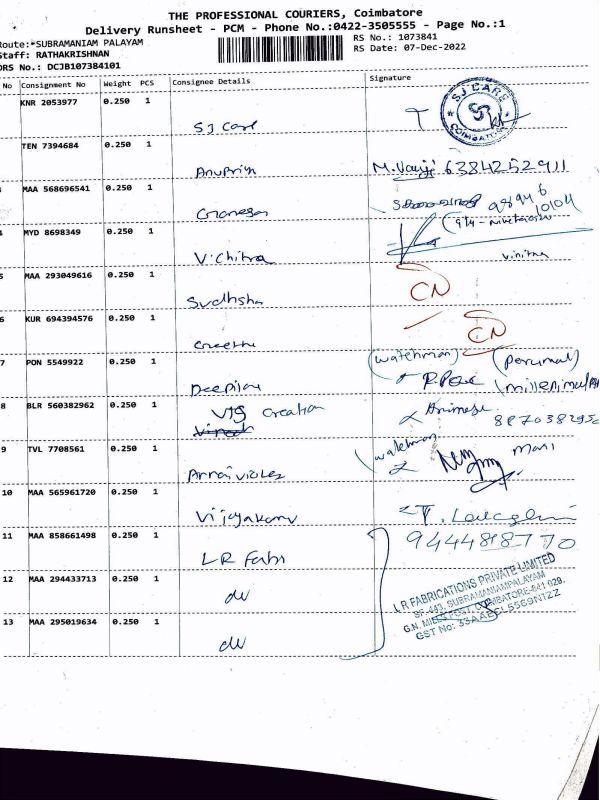 THE PROFESSIONAL COURIERS, Coimbatore
Delivery Runsheet - PCM - Phone No.:0422-3505555 - Page No.:1
Route:*SUBRAMANIAM PALAYAM
RS No.: 1073841
Staff: RATHAKRISHNAN
RS Date: 07-Dec-2022
DRS No.: DCJB107384101
No Consignment No Weight PCS Consignee Details Signature
KNR 2053977 0.250 1
SJ Care
SJ CARE
TEN 7394684 0.250 1
Anupriya
6384252911
MAA 568695541 0.250 1
Ganesan
MYD 8698349 0.250 1
V. Chitra
Vinitha
5 MAA 293049616 0.250 1
CN
6 KUR 694394576 0.250 1
Geetha
CN
7 PON 5549922 0.250 1
(watchman) (Perumal)
8 BLR 560382962 0.250 1
VJS Creation
9 TVL 7708561 0.250 1
watchman
mani
10 MAA 565961720 0.250 1
Vijayakumar
11 MAA 858661498 0.250 1
LR Fabs
9444818770
12 MAA 294433713 0.250 1
do
L R FABRICATIONS PRIVATE LIMITED
SF-443, SUBRAMANIAMPALAYAM
G.N. MILLS POST, COIMBATORE-641 029.
13 MAA 295019634 0.250 1
do